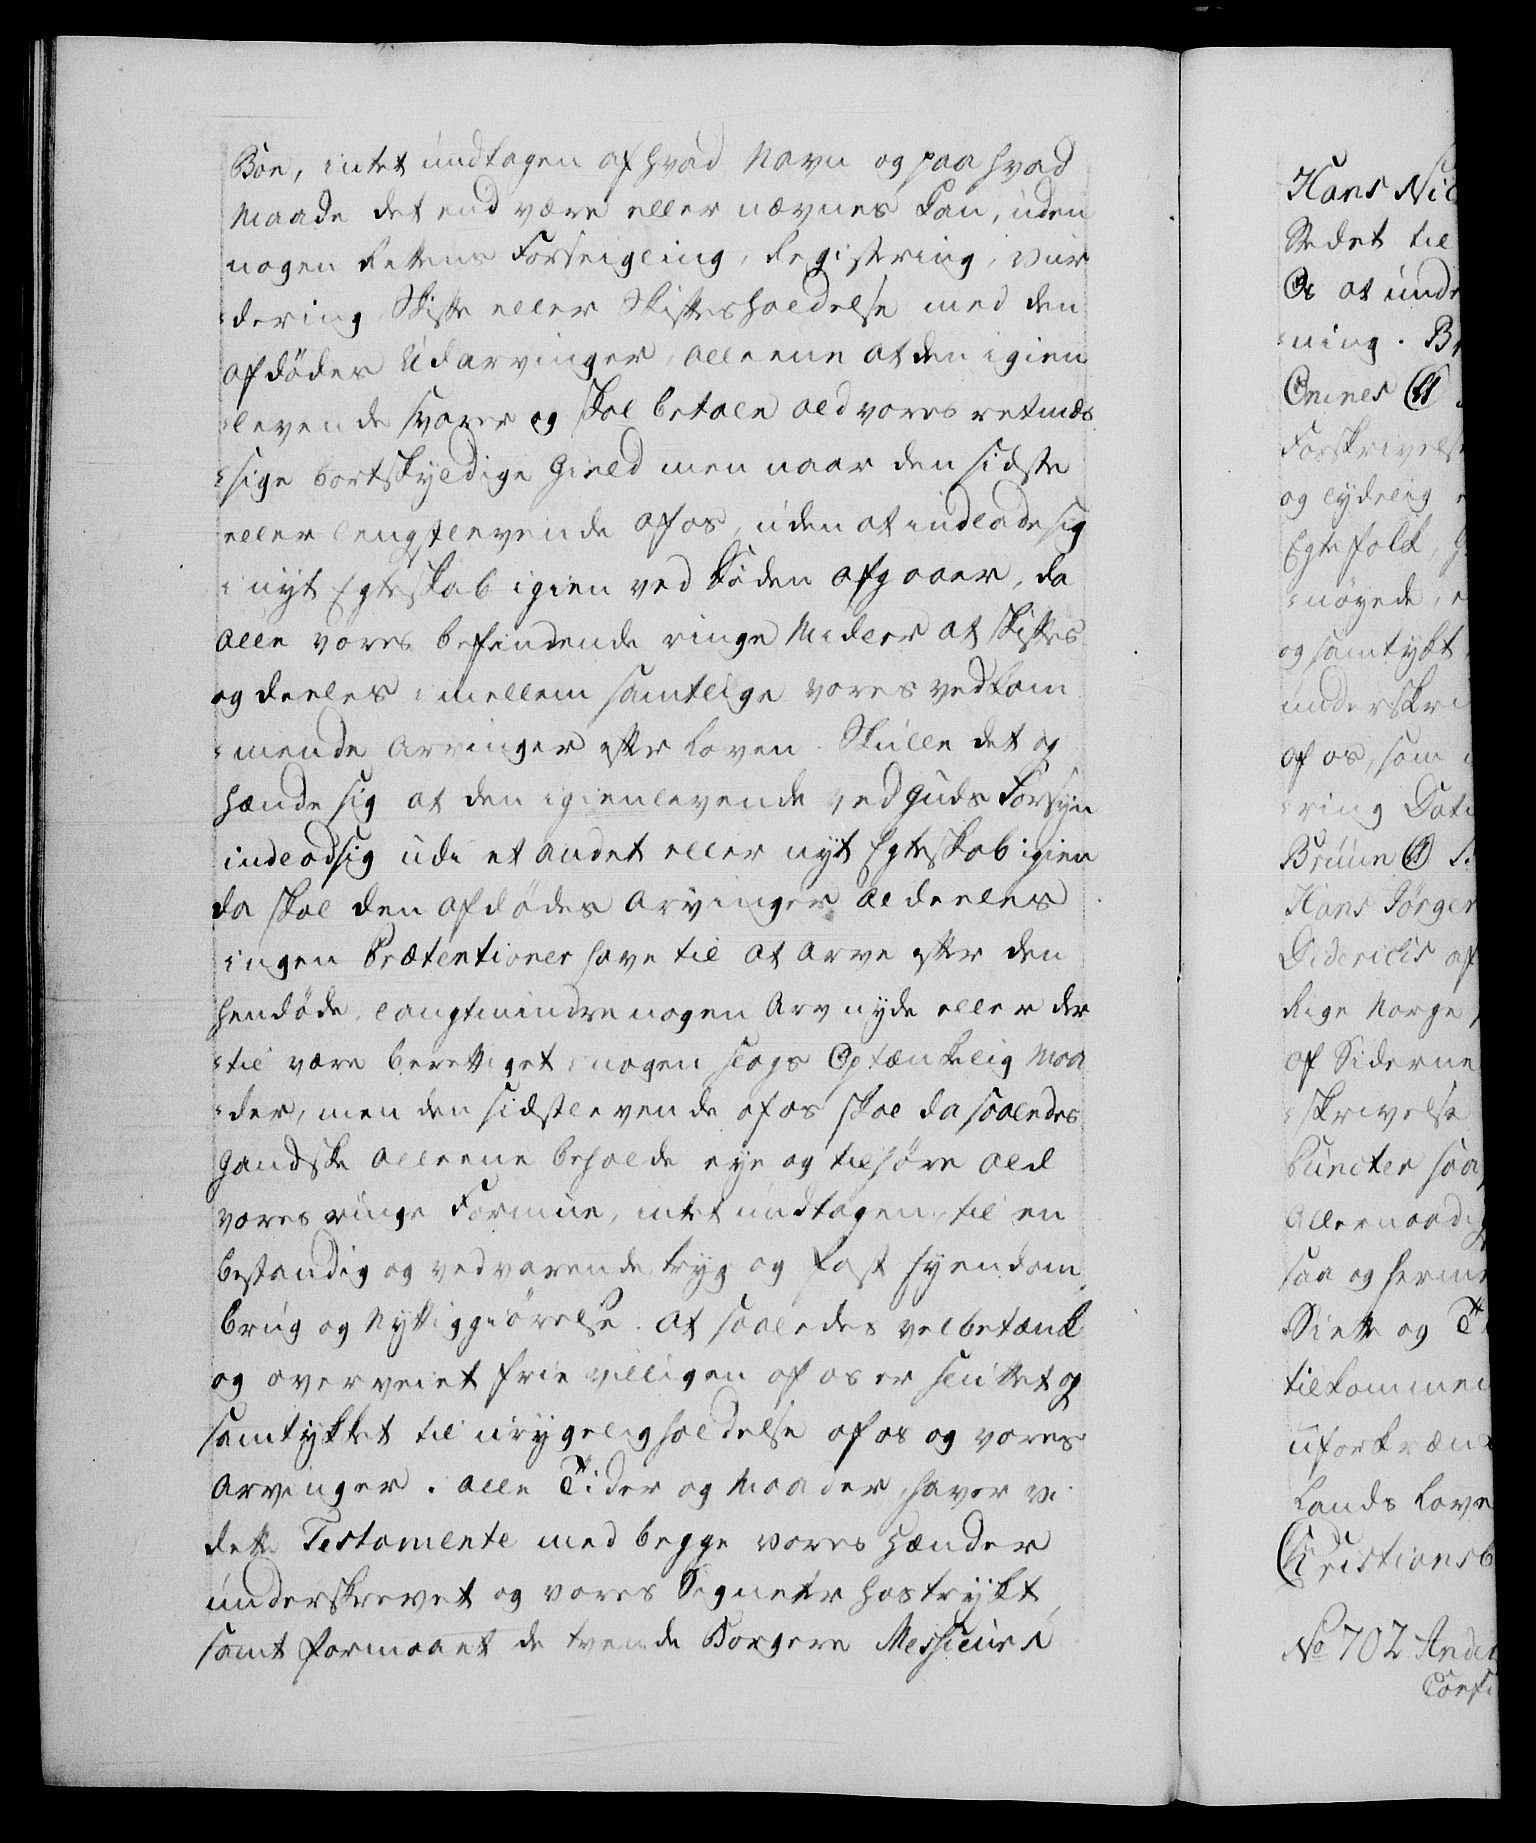 Boe, intet undtagen af hvad Navn og paa hvad
Maade det end være eller nævnes kan, uden
nogen Rettens Forseigling, Registring, Vur
-dering, Skifte eller Skiftesholdelse med den
afdödes Udarvinger, alleene at den igien
-levende svarer og skal betale ald vores retmæs
-sige bortskyldige Gield men naar den sidste
eller lengstlevende af os, uden at indlade sig
i nyt Egteskab igien ved Döden afgaaer, da
alle vores befindende ringe Midler at skiftes
og deeles imellem samtlige vores vedkom
-mende Arvinger efter Loven. Skulle det og
hænde sig at den igienlevende ved Guds Forsyn
indlod sig udi et andet eller nyt Egteskab igien
da skal den afdödes Arvinger aldeeles
ingen Prætentioner have til at arve efter den
hendöde, langtmindre nogen Arv nyde eller der
-til være berettiget i nogen slags Optænkelig Maa
-der, men den sidstlevende af os skal da saaledes
gandske alleene beholde eye og tilhøre ald
vores ringe Formue, intet undtagen, til en
bestandig og vedvarende tryg og fast Eyendom,
brug og Nyttiggiörelse. At saaledes velbetænk
og overveiet frie villigen af os er sluttet og
samtykket til urygelig holdelse af os og vores
Arvinger i alle Tider og Maader, haver vi
dette Testamente med begge vores Hænder
underskrevet og vores Signeter hostrykt,
samt formaaet de tvende Borgere Messieurs
Hans Nic
Stedet til
Os at unde
-ning. Br
Enines
Forskrivelse
og lydelig
Egtefolk,
-nöyede,
og samtykt
underskri
af os, som
-ring Dat
Bruun
Hans Jörgen
Diderichs af
Rige Norge
af Siderne
-skrivelse
Puncter saa
Allernaadig
saa og herme
Siette og T
tilkommen
uforkræn
Lands Love
Christiansb
No 702 Ander
Conf